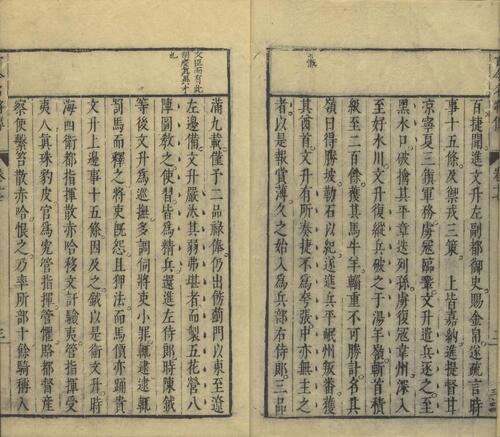 百捷開進文升左副都御史賜金帛遂疏言時
事十五條及禦戎三策 上皆嘉納進提督甘
凉寧夏三領軍務虜冦臨鞏文升遣兵逐之至
黑水口破擒其平章迭列孫虜復冦韋州深入
至好水川文升復縱兵破之于湯羊嶺斬首積
級至二百餘獲其馬牛羊輜重不可勝計名其
嶺曰得勝坡勒石以紀遂進兵平岷州叛番獲
其酋首文升有所奏捷不爲夸張中亦無主之
者以是報賞薄久之始入爲兵部右侍郎三品
滿九載僅予二品祿俸仍出飭薊門以東至遼
左邊備文升嚴汰其弱弗堪者而製五花營八
陣圖敎之使習皆爲精兵還進左侍郎時陳鉞
等後文升爲巡撫多謂伺將吏小罪輒逮逮輒
罰馬而釋之將吏旣怨且狎法而馬價亦踊貴
文升上邊事十五條因及之鉞以是銜文升時
海西衛都指揮散赤哈移文訐驗夷管指揮受
夷人眞珠豹皮官爲宄管指揮管懼賂都督産
察便繫笞散赤哈恨之乃率所部十餘騎稱入
文臣而有此
也